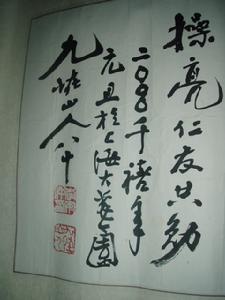 操亮仁友共勉
二〇〇〇千禧年
元旦於上海大園
九山人八十